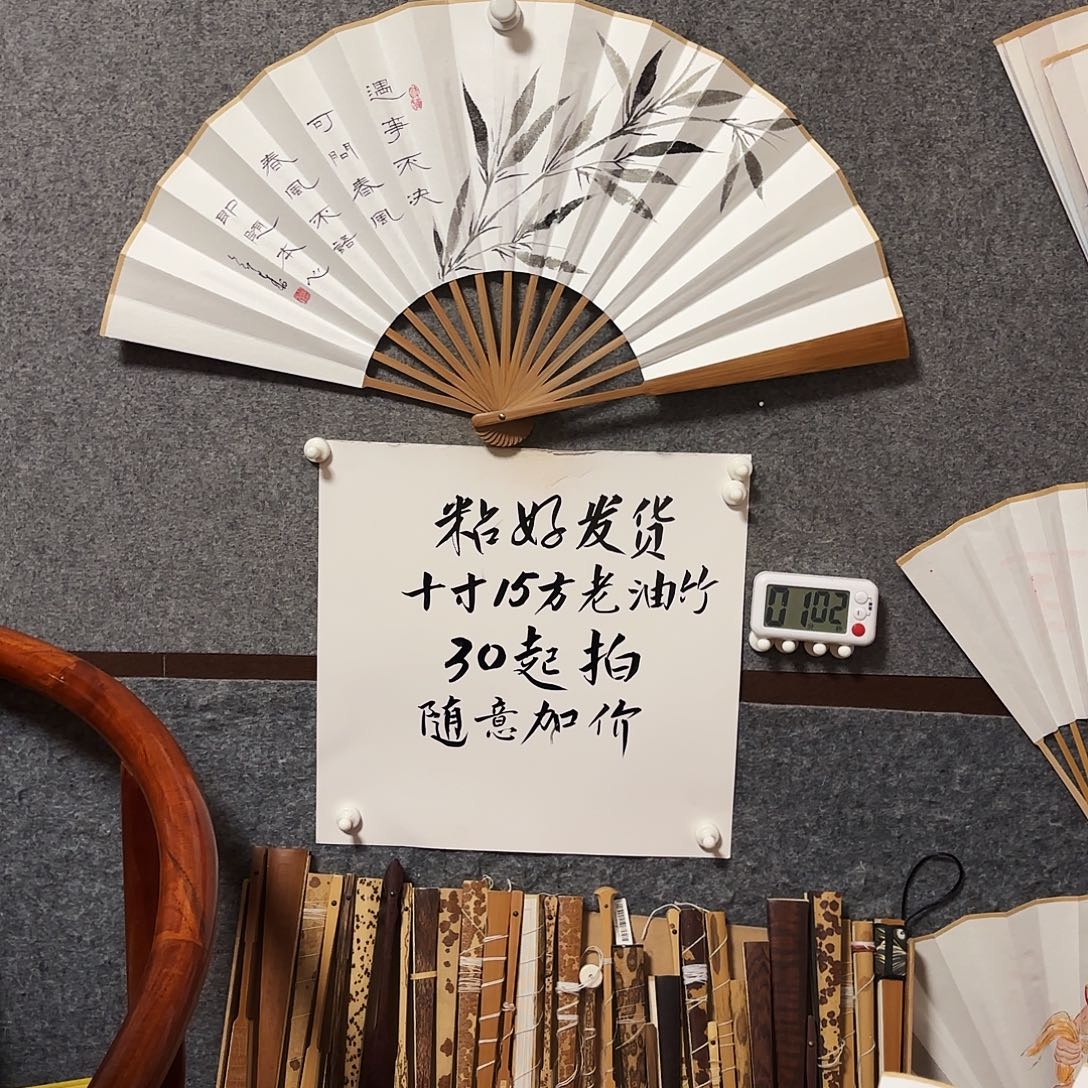 遇事不决
可問春風
春風不語
即隨本心
粘好发货
十寸15方老油竹
30起拍
随意加价
0102